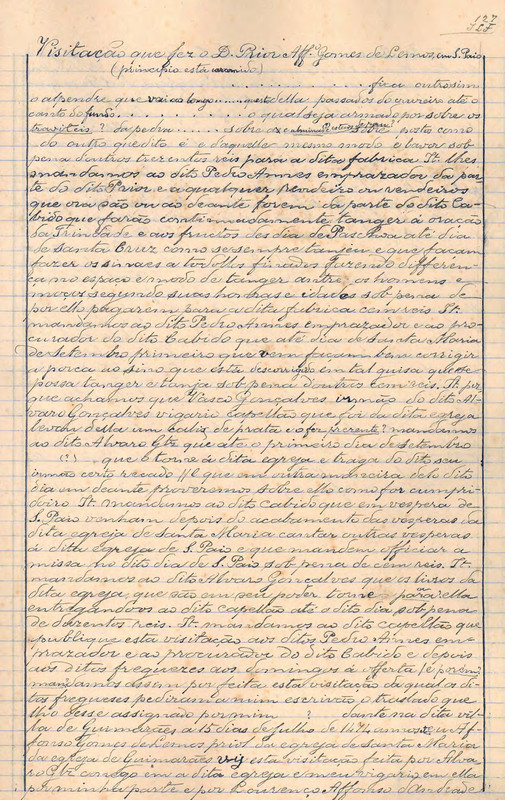 27
Visitação que fez o D. Prior Affº Gomes de Lemos, em S. Paio
(principio está carcomido)
. . . . . fica outrosim
o alpendre que vai ao longo . . . . . questa della passados do ouveiro até o
canto do fundo . . . . . . . o qual seja armado por sobre os
traviteis? da pedra . . . . . sobre postes como
do outro que dito é e daquelle mesmo modo e lavor sob
pena doutros trezentos reis para a dita fabrica It. lhes
mandamos ao dito Pedro Annes emprazador da par-
te do dito Prior e a qualquer rendeiro ou rendeiros
que ora são ou ao deante forem da parte do dito Ca-
bido que farão continuadamente tanger á oração
da Trindade e aos fructos des dia de Paschoa até dia
de Santa Cruz como se sempre tangeu e que façam
fazer os sinaes a todollos finados fazendo differen-
ça no espaço e modo de tanger antre os homens e
moços segundo suas honras e idades sob pena de
por ello pagarem para a dita fabrica cem reis. It.
mandamos ao dito Pedro Annes emprazador e ao pro-
curador do dito Cabido que até dia de Santa Maria
de Setembro primeiro que vem façam bem corrigir
a porca ao sino que está descorregido em tal guisa que se
possa tanger e tanja sob pena doutros cem reis. It. por-
que achamos que Vasco Gonçalves irmão do dito Al-
varo Gonçalves vigario capellão que foi da dita egreja
levou della um calix de prata e o fez mandamos
ao dito Alvaro Glz que até o primeiro dia de setembro
(?) que o torne á dita egreja e traga do dito seu
irmão certo recado /// E que em outra maneira delo dito
dia em deante proveremos sobre ello como for cumpri-
doiro It. mandamos ao dito Cabido que em vespera de
S. Paio venham depois do acabamento das vesperas da
dita egreja de Santa Maria cantar outras vesperas
á dita egreja de S. Paio e que mandem officiar a
missa no dito dia de S. Paio sob pena de cem reis. It.
mandamos ao dito Alvaro Gonçalves que os livros da
dita egreja, que são em seu poder torne para ella
entregando-os ao dito capellão até o dito dia sob pena
de duzentos reis. It. mandamos ao dito capellão que
publique esta visitação aos ditos Pedro Annes em-
prazador e ao procurador do dito Cabido e depois
aos ditos freguezes aos domingos á offerta / e porém
mandamos assim por feita esta visitação da qual os di-
tos freguezes pediram a mim escrivão o traslado que
lho desse assignado por mim ? dante na dita vil-
la de Guimarães a 15 dias de Julho de 1474 annos Af-
fonso Gomes de Lemos prior da egreja de Santa Maria
da egreja de Guimarães esta visitação feita por Alva-
ro Glz conego em a dita egreja e meu vigario em ella
por minha parte e por Lourenço Affonso d'Andrade